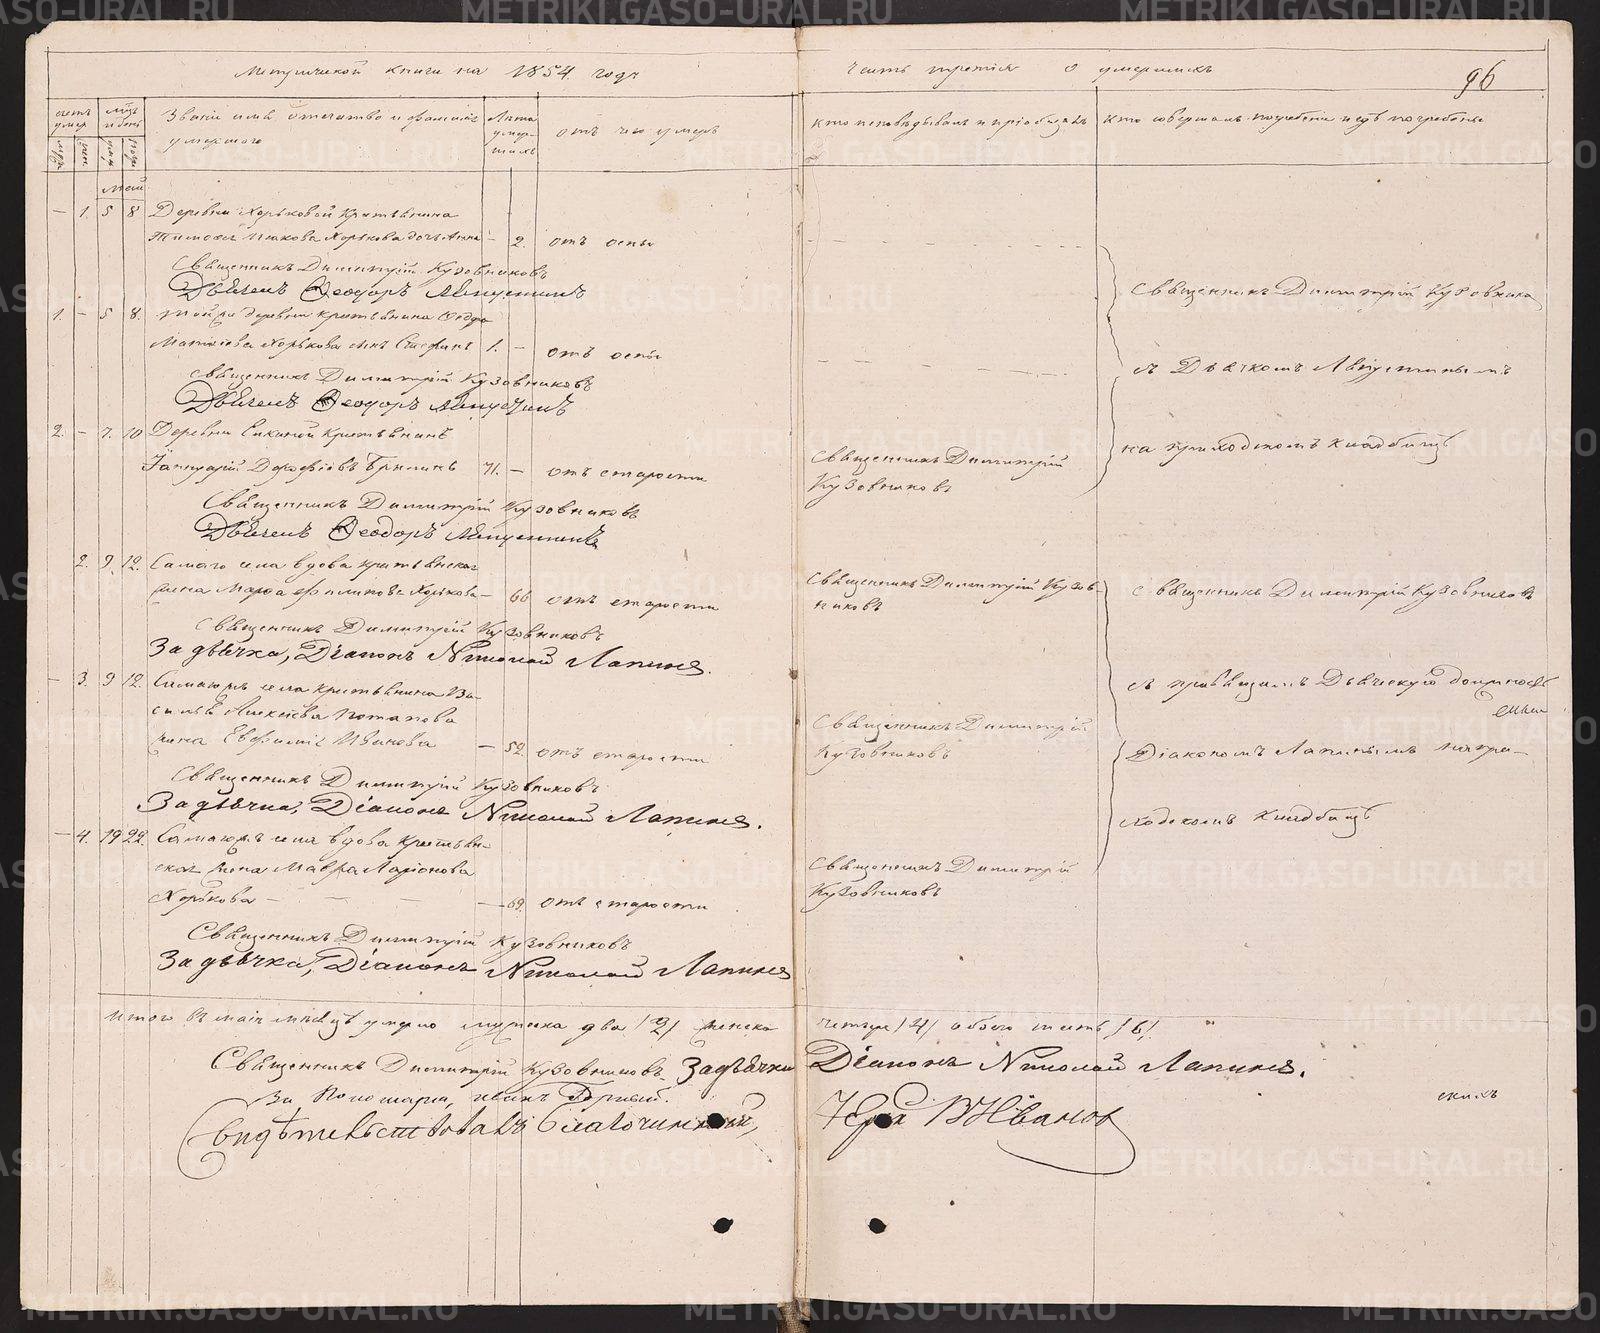 Метрической книги на 1854 годъ
часть третія о умершихъ
96
счетъ умер.
мѣс. и день
Званіе имя отчество и фамилія
умершаго
Лѣта умер-
шихъ
отъ чего умеръ
кто исповѣдывалъ и пріобщалъ
кто совершалъ погребеніе и гдѣ погребены
муж. жен.
Май
— 1. 5 8 Деревни Хорьковой крестьянина
Хорькова дочь Анна — 2. отъ оспы
Священникъ Димитрій Кузовниковъ
Дьячекъ Ѳеодоръ Августинъ
1. — 5 8. Той же деревни крестьянина Ѳедора
Матвіева Хорькова сынъ Стефанъ 1. — отъ оспы
Священникъ Димитрій Кузовниковъ
Дьячекъ Ѳеодоръ Августинъ
Священникъ Димитрій Кузовников
съ Дьячкомъ Августинымъ
на приходскомъ кладбищѣ
2. — 7. 10 Деревни крестьянинъ
Іаннуарій 71. — отъ старости
Священникъ Димитрій Кузовниковъ
Дьячекъ Ѳеодоръ Августинъ
Священникъ Димитрій
Кузовниковъ
2. 9. 12. Самаго села вдова крестьянская
жена Марѳа Филипова Хорькова — 66 отъ старости
Священникъ Димитрій Кузовниковъ
За дьячка, Діаконъ Николай Лапинъ.
Священникъ Димитрій Кузов-
никовъ
Священникъ Димитрій Кузовниковъ
— 3. 9 12. села крестьянина Ва-
силья Алексѣева Потапова
жена Евфимія Иванова — 52. отъ старости
Священникъ Димитрій Кузовниковъ
За дьячка, Діаконъ Николай Лапинъ.
Священникъ Димитрій
Кузовниковъ
съ Дьяческую должность
Діакономъ Лапинымъ на при-
ходскомъ кладбищѣ
— 4. 19 22. села вдова крестьян-
ская жена Мавра Ларіонова
Хорькова — — — — 69. отъ старости
Священникъ Димитрій Кузовниковъ
За дьячка, Діаконъ Николай Лапинъ
Священникъ Димитрій
Кузовниковъ
Итого въ маѣ мѣсяцѣ умерло мужеска два /2/ женска
четыре /4/ обоего шесть /6/
Священникъ Димитрій Кузовниковъ. За дьячка Діаконъ Николай Лапинъ.
За Пономаря,
Свидѣтельствовалъ благочинный, Іерей В Ивановъ
METRIKI.GASO-URAL.RU